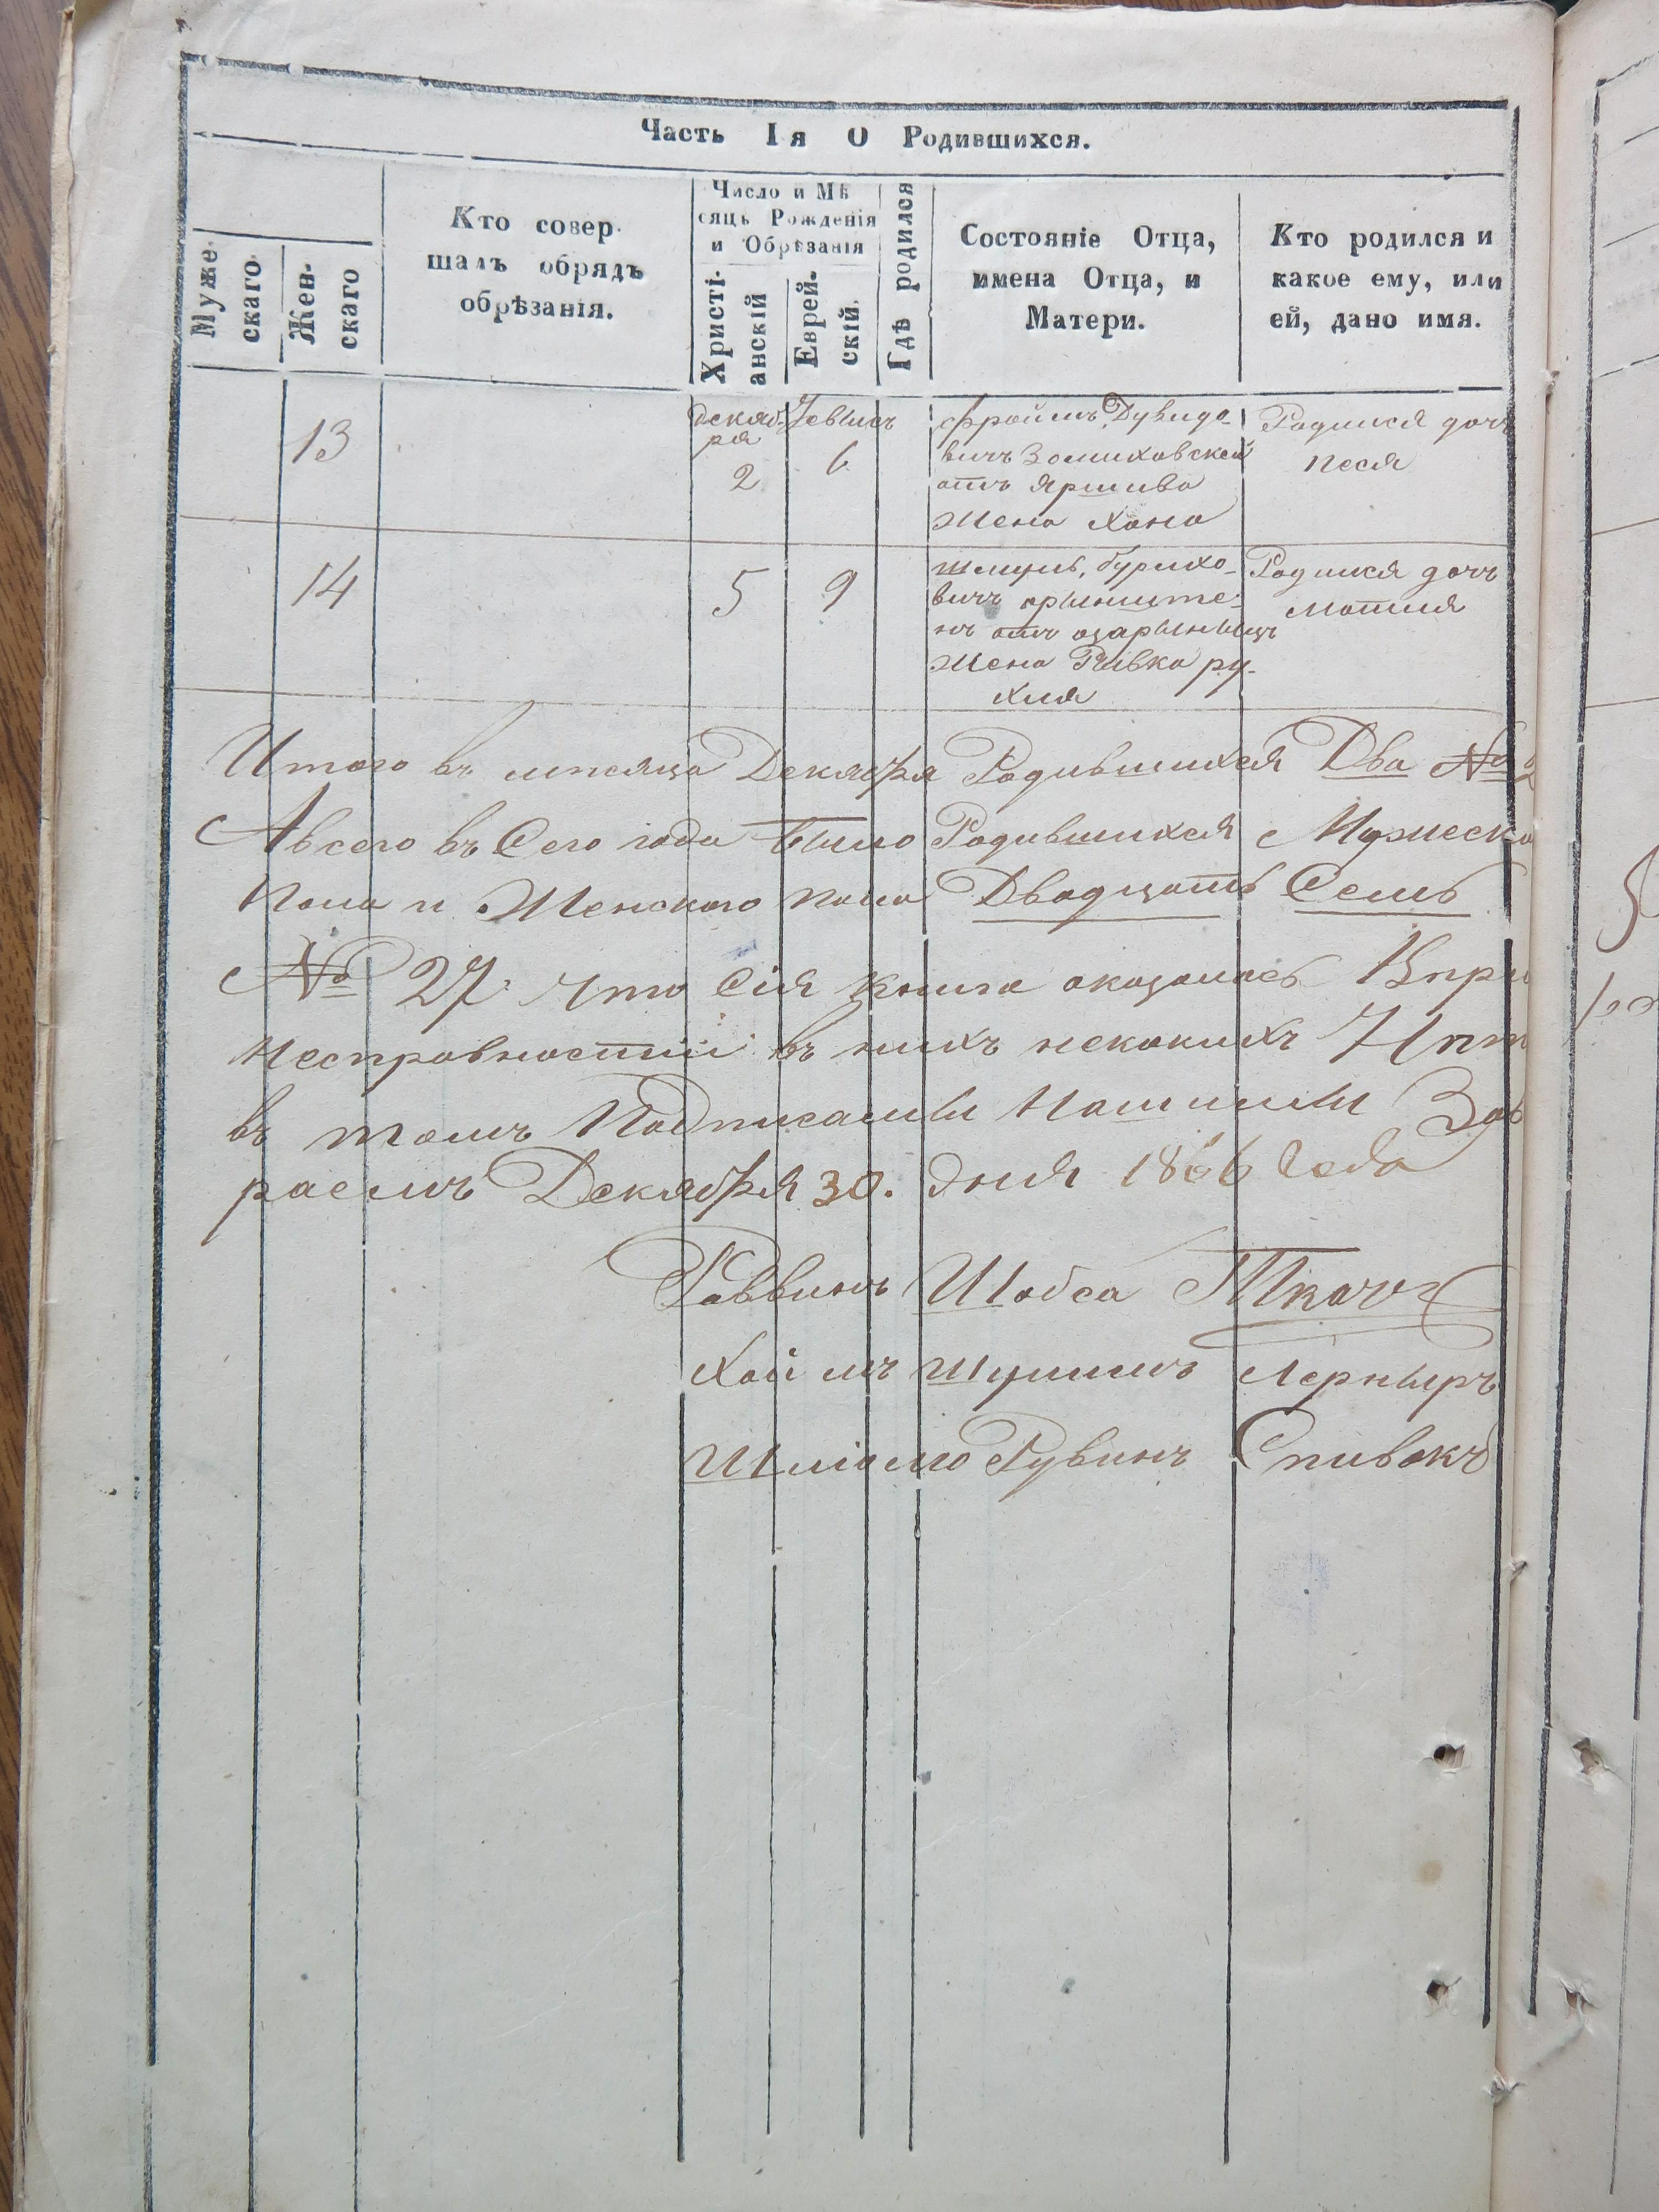 Часть Iя О Родившихся.
Муже-
скаго.
Жен-
скаго
Кто совер-
шалъ обрядъ
обрѣзанія.
Число и Мѣ
сяцъ Рожденія
и Обрѣзанія
Христі-
анскій
Еврей-
скій.
Гдѣ родился
Состояніе Отца,
имена Отца, и
Матери.
Кто родился и
какое ему, или
ей, дано имя.
13
Декяб-
ря
2
6
Фроимъ Дувидо-
вичъ
отъ Яршива
жена Хана
Родился дочъ
Песя
14
5
9
Шмуль, Бурихо-
вичъ
отъ озарыныцъ
жена Ривка ру-
хля
Родился дочъ
Мотля
Итого въ мпсяца Декября Родившихся Два № 2
Авсего въ Сего года было Родившихся Мужеска
Пола и Женского пола Двадцать Семь
№ 27 что Сія книга оказалось Впри
Несправностии въ нихъ некакихъ Нпт
въ томъ Подписами Нашими Зав
раемъ Декября 30. дня 1866 Года
Раввинъ Шабса Ткачъ
Хаймъ Шулимъ Лерныръ
Шліомо Рувинъ Спивакъ